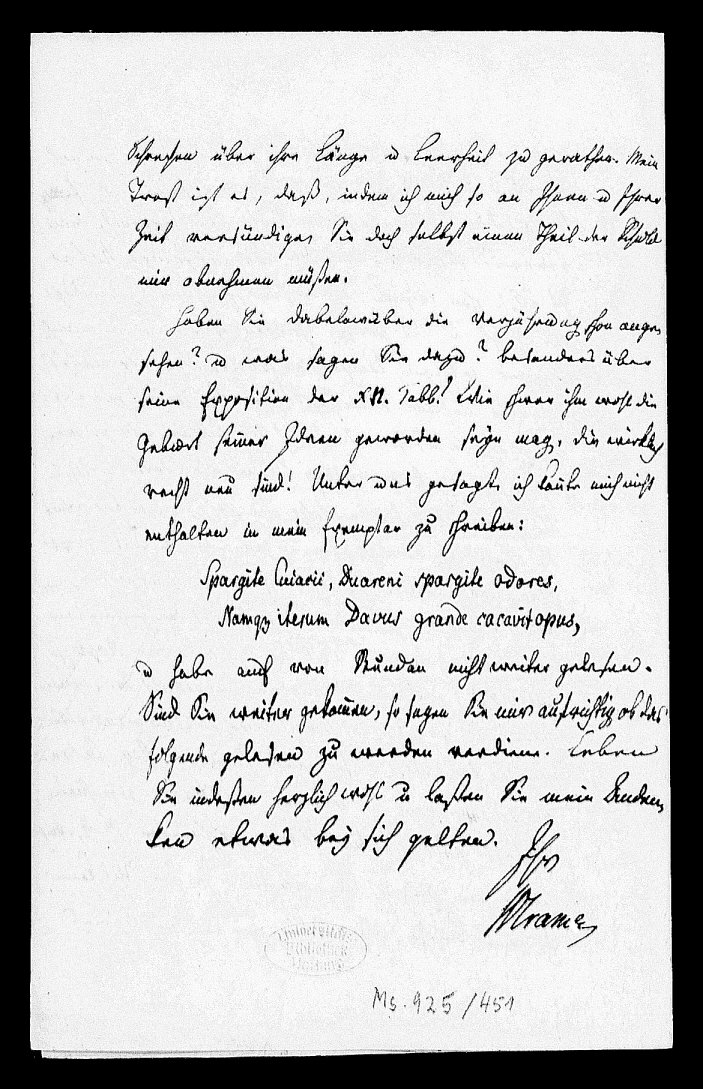 Schrecken über ihre Länge u Leerheit zu gerathen. Mein
Trost ist es, daß, indem ich mich so an Ihnen u Ihrer
Zeit versündige, Sie doch selbst einen Theil der Schuld
mir abnehmen müßen.
Haben Sie Dabelow über die Verjährung schon ange
sehen? u was sagen Sie dazu? besonders über
seine Exposition der XII. Tabb.? Wie schwer ihm wohl die
Geburt seiner Ideen geworden seyn mag, die wirklich
recht neu sind! Unter uns gesagt, ich konte mich nicht
enthalten in mein Exemplar zu schreiben:
Spargite Cuiacii, Duareni spargite odores,
Namq; iterum Davus grande cacavit opus,
u habe auch von Stundan nicht weiter gelesen.
Sind Sie weiter gekommen, so sagen Sie mir aufrichtig ob das
folgende gelesen zu werden verdiene. Leben
Sie indeßen herzlich wohl u laßen Sie mein Anden
ken etwas bey sich gelten.
Ihr
Cramer
Universitäts
Bibliothek
Marburg
Ms. 925/451